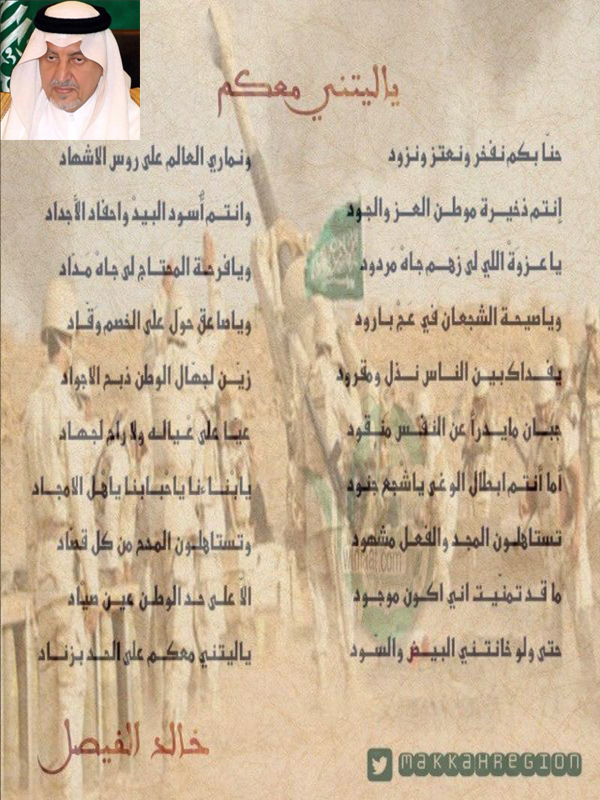 ياليتني معكم
حنّا بكم نفخر ونعتز ونزود
ونماري العالم على روس الاشهاد
إنتم ذخيرة موطن العز والجود
وانتم أسود البيد واحفاد الأجداد
ياعزوة اللي لى زهم جاه مردود
ويافرحة المحتاج لى جاه مداد
وياصيحة الشجعان في عج بارود
وياصاعق حول على الخصم وقّاد
يفداك بين الناس نذل ومقرود
زين لجهّال الوطن ذبح الاجواد
جبان مايدرأ عن النفس منقود
عيّا على عياله ولا راح لجهاد
أما أنتم ابطال الوغى ياشجع جنود
ياأبناءنا ياحبابنا ياهل الامجاد
تستاهلون المجد والفعل مشهود
وتستاهلون المدح من كل قصّاد
ما قد تمنّيت اني اكون موجود
الا على حد الوطن عين صيّاد
حتى ولو خانتني البيض والسّود
ياليتني معكم على الحد بزناد
خالد الفيصل
MAKKAHREGION